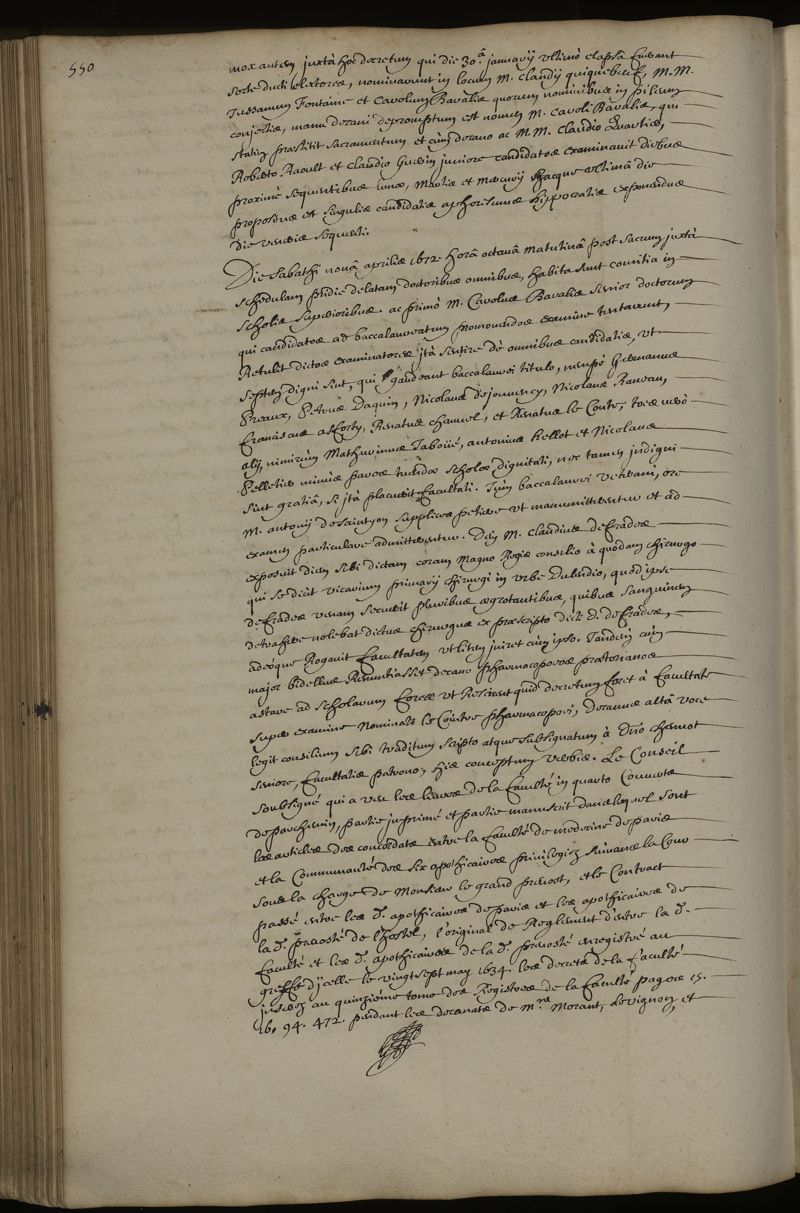 550
mox autem juxtà hoc decretum qui die 30.â januarij ultimò elapsâ fuerant
sorte ducti electores, nominarunt in locum M. Claudij quiquebeuf, M.M.
Tussanum Fontaine et Carolum Barralis quorum nominibus in pileum
conjectis, manu decani depromptum est nomen M. Caroli Barralis, qui
statim præstitit sacramentum et cum decano ac M.M. Claudio Quartier,
Roberto Raoult et Claudio Guerin juniore candidatos examinavit diebus
proximè sequentibus lunæ, Martis et mercurij hacque ultimâ die
propositus est singulis candidatis aphorismus Hippocratis exponendus
die veneris sequenti.
Die Sabathi nonâ aprilis 1672. horâ octavâ matutinâ post sacrum juxtà
schedulam pridie delatam doctoribus omnibus, habita sunt comitia in
scholis superioribus. ac primò M. Carolus Barralis senior doctorum
qui candidatos ad baccalaureatum promovendos examine tentarunt,
Retulit dictos examinatores ità sentire de omnibus candidatis, ut
septem digni sint, qui gaudeant baccalaurei titulo, nempè Germanus
Preaux, Petrus Daquin, Nicolaus de jouvency, Nicolaus Rauvau,
Franciscus afforty, Renatus chamel, et Renatus le Conte; tres verò
alij, nimirùm Mathurinus Taboüé, antonius Hellot et Nicolaus
Pelletier minùs pares tuendæ scholæ dignitati, nec tamen indigni
sint gratiâ, si ità placuerit facultati. Tùm baccalaurei veterani, ore
M. antonij de saintyon supplices petiere ut manumitterentur et ad
examen particulare admitterentur. Dein M. Claudius de frades
exposuit diem sibi dictam coram Magno Regis consilio à quodam chirurgo
qui se dicit vicarium primarij chirurgi in urbe Dulendio, quod ipse
de frades venam secuerit pluribus ægrotantibus, quibus sanguinem
detrahere nolebat dictus chirurgus ex præscripto dicti D. de frades,
adeoque Rogavit facultatem ut litem juiret cum ipso. Tandem cùm
major bidellus Renuntiasset decano pharmacopoeos prætorianos
astare ad scholarum fores ut Rescirent quid decretum foret à facultate
super examine Nominati le Cointre pharmacopoei, decanus altâ voce
legit consilium sibi traditum scripto atque subsignatum à Dno chenot
seniore, facultatis patrono, his conceptum verbis. Le Conseil
soubsigné qui a veu les livres de la faculté in quarto Couverts
de parchemin, partie imprimé et partie manuscrit dans lequel sont
les articles des concordats entre la faculté de medecine de paris
et la Communauté des six apothicaires privilegiez suivans la Cour
sous la charge de Monsieur le grand prevost, et le Contract
passé entre les d. apothicaires de paris et les apothicaires de
la d. prevosté de l'hostel, l'original de Reglement d'entre la d.
faculté et les d. apothicaires de la d. prevosté enregistré au
greffe d'jcelle le vingt sept may 1634. les decrets de la faculté
inserez au quinziéme tome des Registres de la faculté pages 15.
16. 94. 472. pendant les decanats de Mres Morant, le vignon et